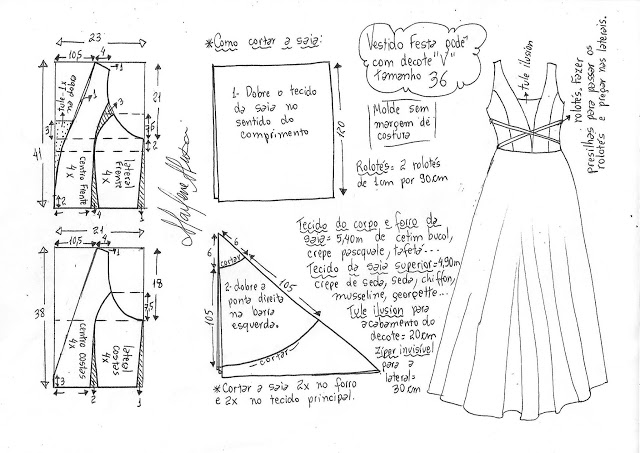 23
10,5
4
1
1
3
dobo eu
tule 1x
3
21
7,5
2
41
centro frente
4x
lateral
frente
4x
2
4
1
21
10,5
2
1
18
7,5
38
centro costas
4x
lateral
costas
4x
3
2
1
Marlene Mukai
*Como cortar a saia:
1- Dobre o tecido
da saia no
sentido do
comprimento
120
6
6
cortar
105
105
2- dobre a
ponta direita
na barra
esquerda.
cortar
*Cortar a saia 2x no forro
e 2x no tecido principal.
Vestido Festa podē
com decote "V"
Tamanho 36
Molde sem
margem de
costura
Rolotés= 2 rolotés
de 1cm por 90cm
Tecido do corpo e forro da
saia= 5,40m de cetim bucol,
crepe pascquale, tafetá...
Tecido da saia superior=4,90m
crepe de seda, seda, chiffon,
musseline, georgette...
Tule ilusion para
acabamento do
decote= 20cm
Ziper invisível
para a
lateral=
30cm
tule ilusion
rolotés. Fazer
presilhas para passar os
rolotés e pregar nas laterais.